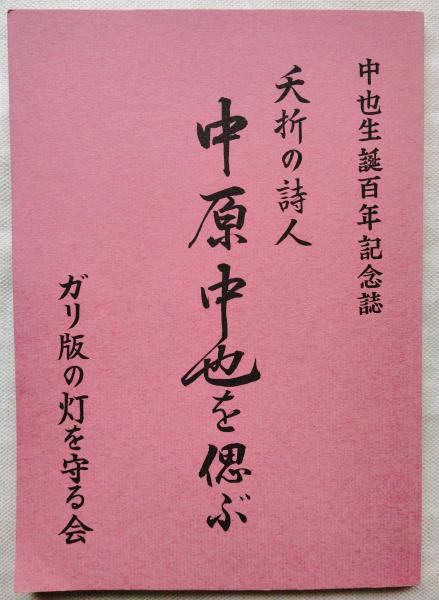 中也生誕百年記念誌
夭折の詩人
中原中也を偲ぶ
ガリ版の灯を守る会